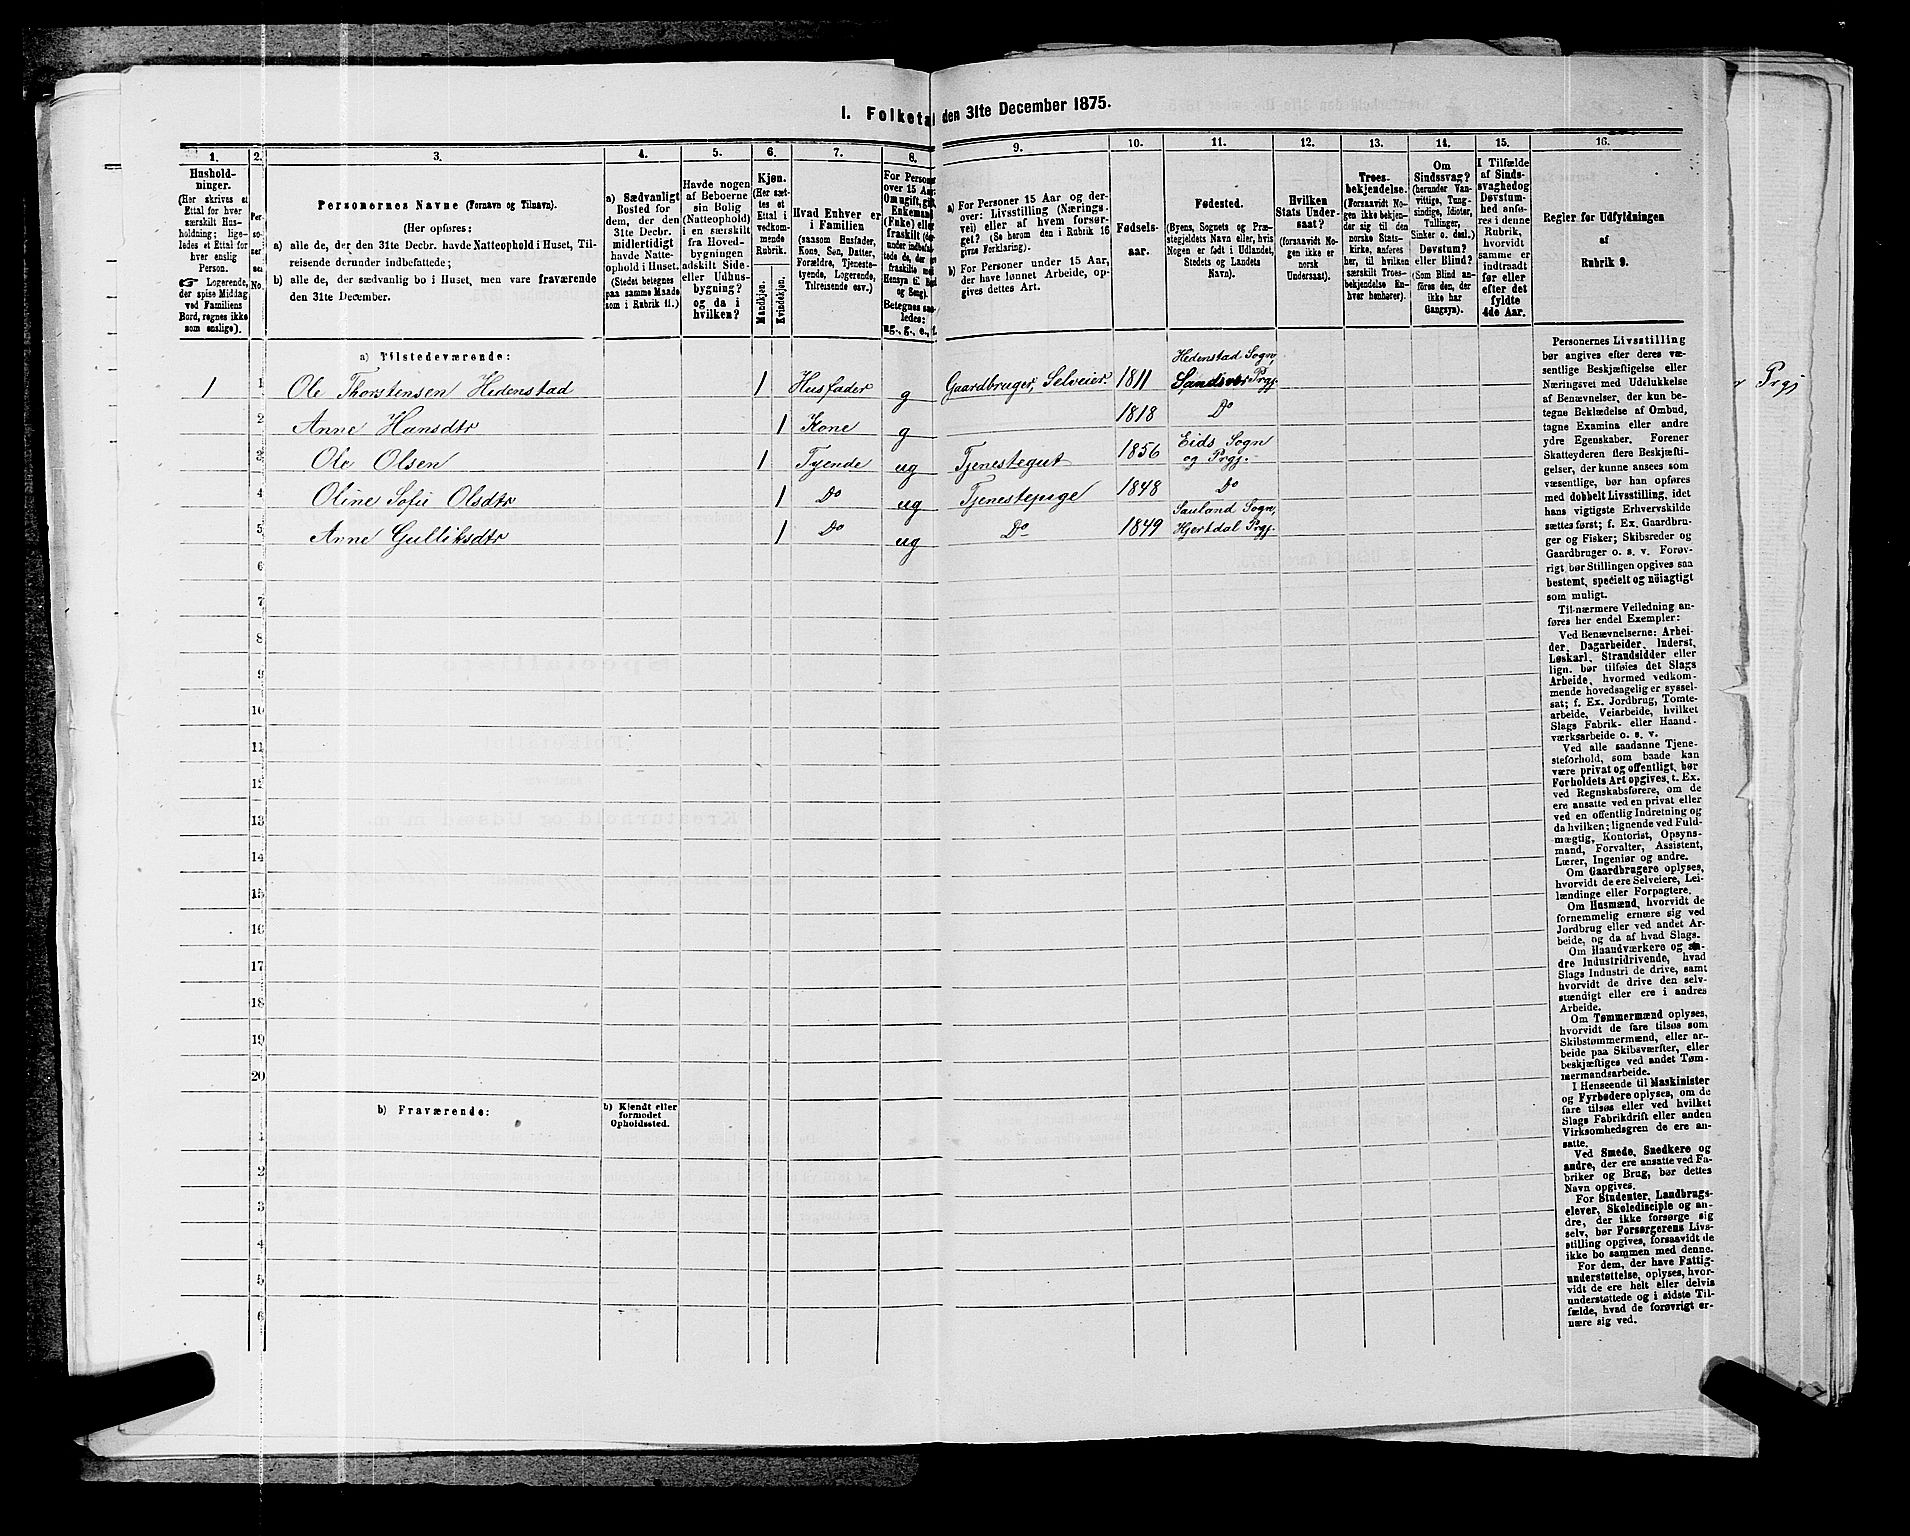 I. Folketal den 31te December 1875.
1. 2. 3. 4. 5. 6. 7. 8. 9. 10. 11. 12. 13. 14. 15. 16.
Hushold-
ninger.
(Her skrives et
Ettal for hver
særskilt Hus-
holdning; lige-
ledes et Ettal for
hver enslig
Person.
☛ Logerende,
der spise Middag
ved Familiens
Bord, regnes ikke
som enslige).
Per-
so-
ner-
nes
No.
Personernes Navne (Fornavn og Tilnavn).
(Her opføres:
a) alle de, der den 31te Decbr. havde Natteophold i Huset, Til-
reisende derunder indbefattede;
b) alle de, der sædvanlig bo i Huset, men vare fraværende
den 31te December.
a) Sædvanligt
Bosted for
dem, der den
31te Decbr.
midlertidigt
havde Natte-
ophold i Huset.
(Stedet betegnes
paa samme Maade
som i Rubrik 11.)
Havde nogen
af Beboerne
sin Bolig
(Natteophold)
i en særskilt
fra Hoved-
bygningen
adskilt Side-
eller Udhus-
bygning?
og da i
hvilken?
Kjøn.
(Her sæt-
tes et
Ettal i
vedkom-
mende
Rubrik.
Mandkjøn.
Kvindekjøn.
Hvad Enhver er
i Familien
(saasom Husfader,
Kone, Søn, Datter,
Forældre, Tjeneste-
tyende, Logerende,
Tilreisende osv.)
For Personer
over 15 Aar:
Om ugift, gift,
Enkemand
(Enke) eller
fraskilt (der-
under indbefat-
tede de, der ere
fraskilte med
Hensyn til Bord
og Seng).
Betegnes saa-
ledes:
ug., g., e., f.
a) For Personer 15 Aar og der-
over: Livsstilling (Nærings
vei) eller af hvem forsør-
get? (Se herom den i Rubrik 16
givne Forklaring).
b) For Personer under 15 Aar,
der have lønnet Arbeide, op-
gives dettes Art.
Fødsels-
aar.
Fødested.
(Byens, Sognets og Præ-
stegjeldets Navn eller, hvis
Nogen er født i Udlandet,
Stedets og Landets
Navn).
Hvilken
Stats Under-
saat?
(forsaavidt No-
gen ikke er
norsk
Undersaat).
Troes-
bekjendelse.
(Forsaavidt No-
gen ikke bekjen-
der sig til den
norske Stats-
kirke, anføres
her, til hvilken
særskilt Troes-
bekjendelse En-
hver henhører).
Om
Sindssvag?
(herunder Van-
vittige, Tung-
sindige, Idioter,
Tullinger,
Sinker o. desl.)
Døvstum?
eller Blind?
(Som Blind an-
føres den, der
ikke har
Gangsyn).
I Tilfælde
af Sinds-
svaghed og
Døvstum-
hed anfø-
res i denne
Rubrik,
hvorvidt
samme er
indtraadt
før eller
efter det
fyldte
4de Aar.
Regler for Udfyldningen
af
Rubrik 9.
a) Tilstedeværende:
1 1 Ole Thorstensen Hedenstad 1 Husfader g Gaardbruger, Selveier. 1811 Hedenstad Sogn, Sandsvær Prgj.
2 Anne Hansdtr 1 Kone g 1818 Do
3 Ole Olsen 1 Tyende ug Tjenestegut 1856 Eids Sogn og Prgj.
4 Oline Sofie Olsdtr 1 Do ug Tjenestepige 1848 Do
5 Anne Gulliksdtr 1 Do ug Do 1849 Sauland Sogn, Hjertdal Prgj.
6
7
8
9
10
11
12
13
14
15
16
17
18
19
20
b) Fraværende:
b) Kjendt eller
formodet
Opholdssted.
1
2
3
4
5
6
Personernes Livsstilling
bør angives efter deres væ-
sentlige Beskjæftigelse eller
Næringsvei med Udelukkelse
af Benævnelser, der kun be-
tegne Beklædelse af Ombud,
tagne Examina eller andre
ydre Egenskaber. Forener
Skatteyderen flere Beskjæfti-
gelser, der kunne ansees som
væsentlige, bør han opføres
med dobbelt Livsstilling, idet
hans vigtigste Erhvervskilde
sættes først; f. Ex. Gaardbru-
ger og Fisker; Skibsreder og
Gaardbruger o. s. v. Forøv-
rigt bør Stillingen opgives saa
bestemt, specielt og nöiagtigt
som muligt.
Til nærmere Veiledning an-
føres her endel Exempler:
Ved Benævnelserne: Arbei-
der, Dagarbeider, Inderst,
Løskarl, Strandsidder eller
lign. bør tilføies det Slags
Arbeide, hvormed vedkom-
mende hovedsagelig er syssel-
sat; f. Ex. Jordbrug, Tomte-
arbeide, Veiarbeide, hvilket
Slags Fabrik- eller Haand-
værksarbeide o. s. v.
Ved alle saadanne Tjene-
steforhold, som baade kan
være privat og offentligt, bør
Forholdets Art opgives, t. Ex.
ved Regnskabsførere, om de
ere ansatte ved en privat eller
ved en offentlig Indretning og
da hvilken; lignende ved Fuld-
mægtig, Kontorist, Opsyns-
mand, Forvalter, Assistent,
Lærer, Ingeniør og andre.
Om Gaardbrugere oplyses,
hvorvidt de ere Selveiere, Lei-
lændinge eller Forpagtere.
Om Husmænd, hvorvidt de
fornemmelig ernære sig ved
Jordbrug eller ved andet Ar-
beide, og da af hvad Slags.
Om Haandværkere og an-
dre Industridrivende, hvad
Slags Industri de drive, samt
hvorvidt de drive den selv-
stændigt eller ere i andres
Arbeide.
Om Tømmermænd oplyses,
hvorvidt de fare tilsøs som
Skibstømmermænd, eller ar-
beide paa Skibsværfter, eller
beskjæftiges ved andet Tøm-
mermandsarbeide.
I Henseende til Maskinister
og Fyrbødere oplyses, om de
fare tilsøs eller ved hvilket
Slags Fabrikdrift eller anden
Virksomhedsgren de ere an-
satte.
Ved Smede, Snedkere og
andre, der ere ansatte ved Fa-
briker og Brug, bør dettes
Navn opgives.
For Studenter, Landbrugs-
elever, Skoledisciple og an-
dre, der ikke forsørge sig
selv, bør Forsørgerens Livs-
stilling opgives, forsaavidt de
ikke bo sammen med denne.
For dem, der have Fattig-
understøttelse, oplyses, hvor-
vidt de ere helt eller delvis
understøttede og i sidste Til-
fælde, hvad de forøvrigt er-
nære sig ved.
Prgj